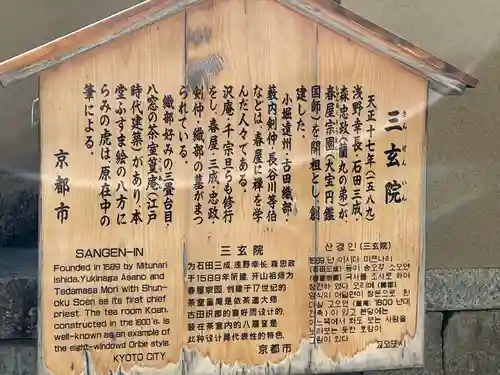 三玄院
さんげんいん
天正十七年(一五八九)
浅野幸長・石田三成・
森忠政(蘭丸の弟)が
春屋宗園(大宝円鑑
国師)を開祖とし、創
建した。
小堀遠州・古田織部・
薮内剣仲・長谷川等伯
などは、春屋に禅を学
んだ人々である。
沢庵・千宗旦らも修行
をし、春屋・三成・忠政・
剣仲・織部の墓がまつ
られている。
織部好みの三畳台目、
八窓の茶室篁庵(江戸
時代建築)があり、本
堂ふすま絵の八方に
らみの虎は、原在中の
筆による。
京都市
SANGEN-IN
Founded in 1589 by Mitunari
Ishida, Yukinaga Asano and
Tadamasa Mori with Shun-
oku Soen as its first chief
priest. The tea room Koan,
constructed in the 1600's, is
well-known as an example of
the eight-windowed Oribe style.
KYOTO CITY
三玄院
为石田三成,浅野幸长,森忠政
于1589年所建,开山祖师为
春屋宗园。创建于17世纪的
茶室篁庵是依茶道大师
古田织部的喜好而设计的,
装在茶室内的八扇窗是
此种设计具代表性的特色。
京都市
산겐인(三玄院)
1589년 이시다 미쯔나리
(石田三成)
교또시